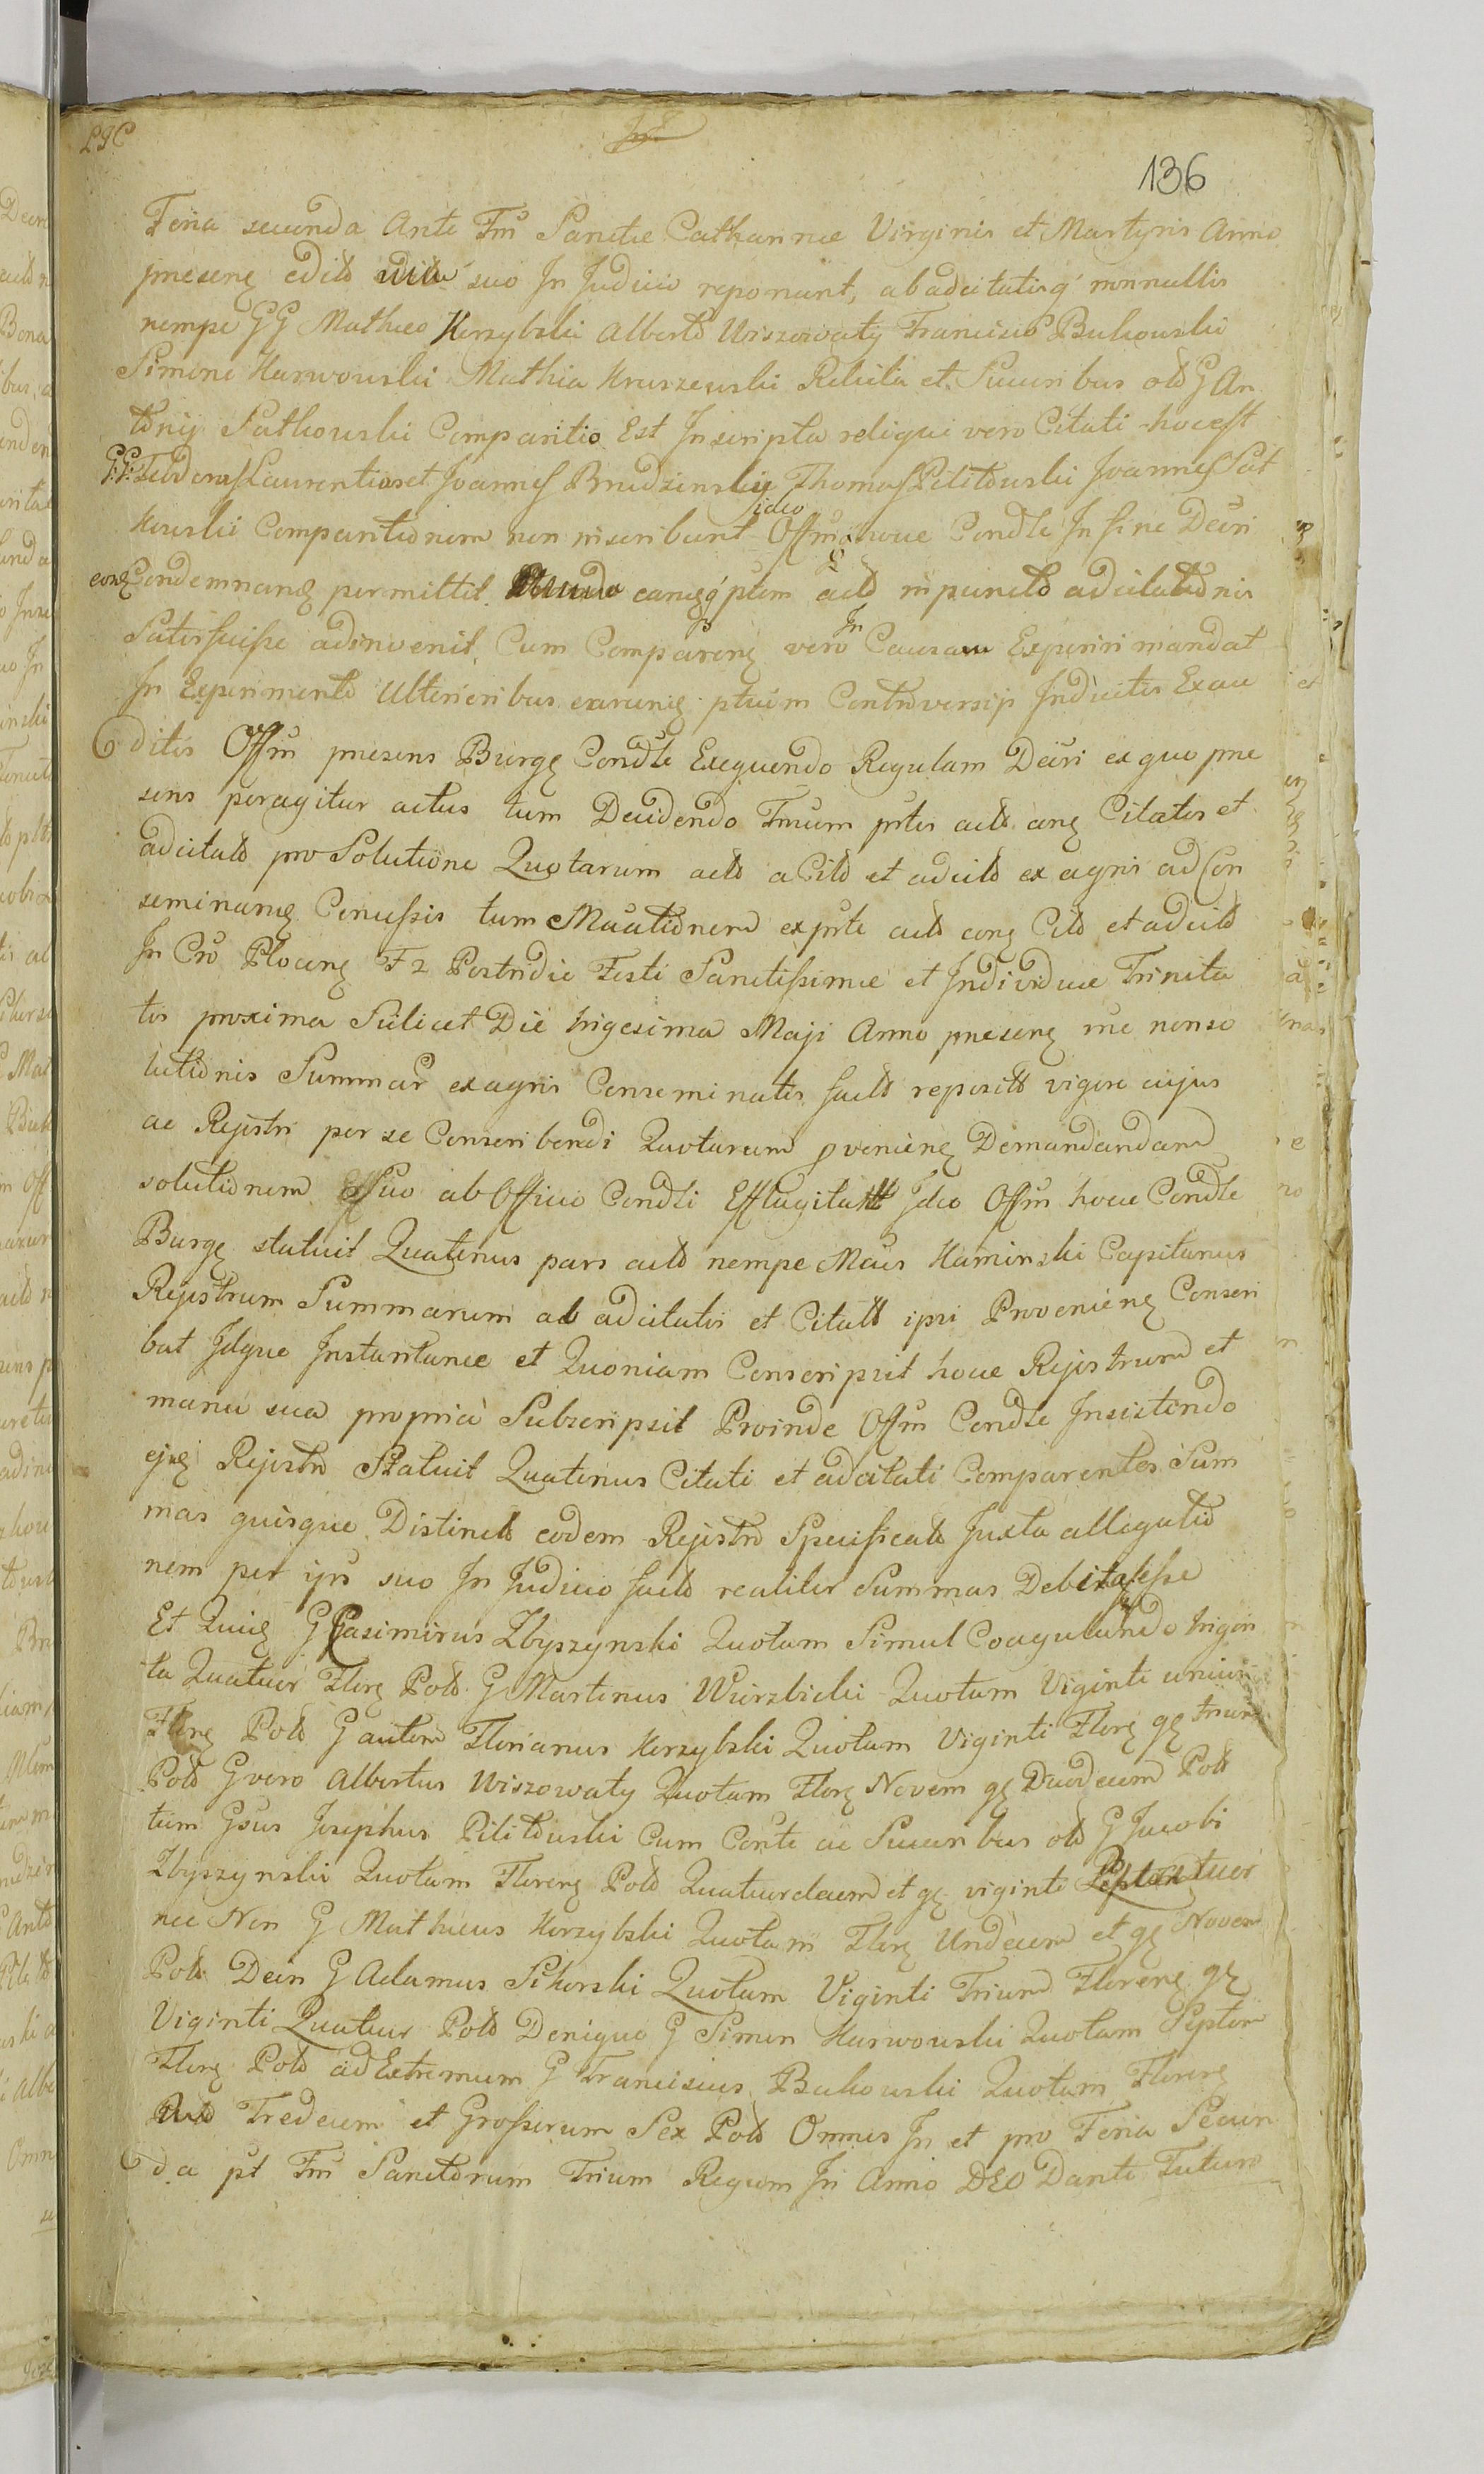 136
Feria secunda Ante Fm Sanctae Catharinae Virginis et Martyris Anno
praesenȝ edito suo In Judicio reponunt, ab adcitatisq nonnullis
nempe GG Matheo Korzybski Alberto Wiszowaty Francisco Bukowski
Simone Karwowski Mathia Kruszewski Relicta et Succribus olo G An
tonij Satkowski Comparitio Est Inscripta reliqui vero Citati hoc est
GG. Laurentius et Joannes Brudzinskij Thomas Pilitowski Joannes Sat
kowski Comparitionem non inscribunt ideo Offm hocce Condle In fine Decri
Condemnanȝ permittit. ptem acto in puncto adcitationis
Satisfecisse adinvenit, Cum Comparenȝ vero In Causa Experiri mandat
In Experimento Ulterioribus ptium Controversijs Indicites Exau
ditis Offm praesens Burgȝ Condle Exequendo Regulam Decri ex quo prae
sens peragitur actus tum Decidendo Tmum prtis acto Citatis et
adcitato pro Solutione Quotarum acto a Cito et adcito ex agris ad Con
seminanȝ Concessis tum exprte acto conȝ Cito et adcito
In Cro Plocenȝ F2 Postridie Festi Sanctissimae et Individuae Trinita
tis proxima Scilicet Die trigesima Maji Anno praesenȝ nonso
lutionis Summar ex agris Conseminatis facto reposito vigore cujus
ac Rejistri per se Conscribendi Quotarum provenienȝ Demandandam
solutionem ab Officio Condli Efflagitat Ideo Offm hocce Condle
Burgȝ statuit Quatenus pars acto nempe Kaminski Capitanus
Rejistrum Summarum ab adcitatis et Citato ipsi Provenienȝ Conscri
bat Idque Instantanee et Quoniam Conscripsit hocce Rejistrum et
manu sua propria Subscripsit Proinde Offm Condle Insistendo
ejȝ Rejistro Statuit Quatenus Citati et adcitati Comparentes Sum
mas quisque Distincto eodem Rejistro Specificato Juxta allegatio
nem per ips suo In Judicio facto realiter Summas Debita esse
Et Quiȝ G Casimirus Zbyszynski Quotam Simul Coagulando trigin
ta Quatuor Florȝ Polo. G Martinus Wierzbicki Quotam Viginti unius
Florȝ Polo G autem Florianus Korzybski Quotam Viginti Florȝ gȝ trium
Polo G vero Albertus Wiszowaty Quotam Florȝ Novem gȝ Duodecim Polo
tum Gsus Josephus Pilitowski Cum Conte ac Succribus olo G Jacobi
Zbyszynski Quotam Florenȝ Polo Quatuordecim et gȝ viginti
nec Non G Matheus Korzybski Quotam Florȝ Undecim et gȝ Novem
Polo Dein G Adamus Sikorski Quotam Viginti Trium Florenȝ gȝ
Viginti Quatuor Polo Denique G Simon Karwowski Quotam Septem
Florȝ Polo ad Extremum G Franciscus Bukowski Quotam Florenȝ
Tredecim et Grossorum Sex Polo Omnes In et pro Feria Secun
da pt Fm Sanctorum Trium Regum In Anno DEO Dante Futuro